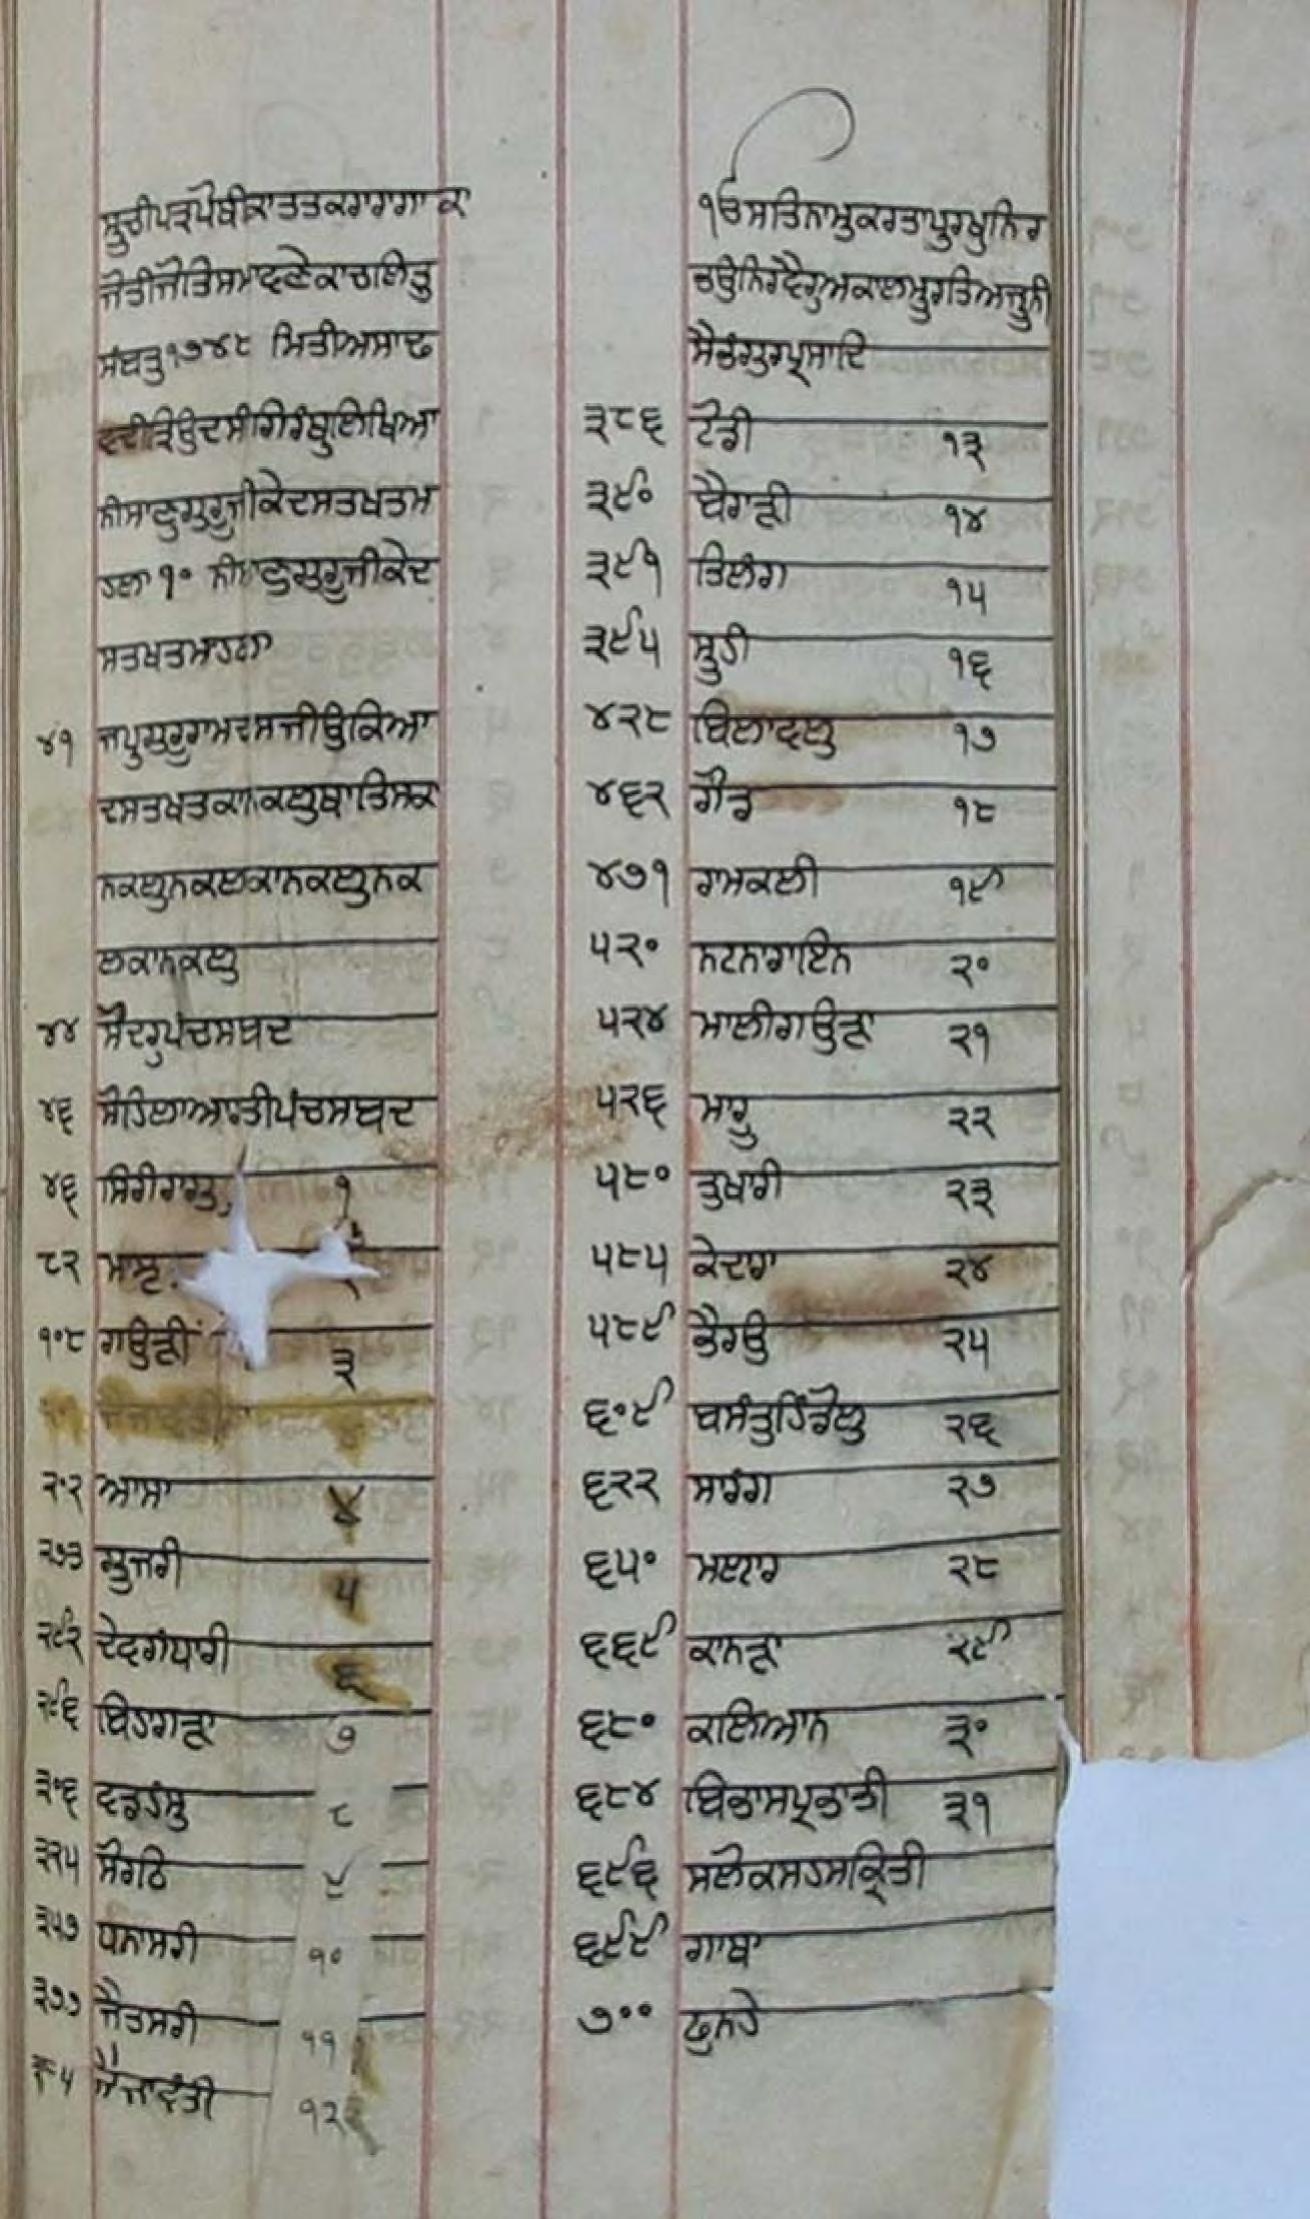 ਸੂਚੀਪਤ੍ਰਪੋਥੀਕਾਤਤਕਰਾਰਾਗਾਕਾ
ਜੋਤੀਜੋਤਿਸਮਾਵਣੇਕਾਚਲਿਤ੍ਰੁ
ਸੰਬਤੁ੧੭੪੮ ਮਿਤੀਅਸਾਢ
ਵਦੀਤ੍ਰਿਉਦਸੀਗਿਰੰਥੁਲਿਖਿਆ
ਨੀਸਾਣੁਗੁਰੂਜੀਕੇਦਸਤਖਤਮ
ਹਲਾ ੧੦ ਨੀਸਾਣੁਗੁਰੂਜੀਕੇਦ
ਸਤਖਤਮਹਲਾ
੪੧ ਜਪੁਗੁਰੂਰਾਮਦਾਸਜੀਉਕਿਆ
ਦਸਤਖਤਕਾਨਕਲੁਥਾਤਿਸਕਾ
ਨਕਲੁਨਕਲਕਾਨਕਲੁਨਕ
ਲਕਾਨਕਲੁ
੪੪ ਸੋਦਰੁਪੰਚਸਬਦ
੪੬ ਸੋਹਿਲਾਆਰਤੀਪੰਚਸਬਦ
੪੬ ਸਿਰੀਰਾਗੁ ੧
੮੨ ਮਾਝ
੧੦੮ ਗਉੜੀ ੩
੨੦੨ ਆਸਾ ੪
੨੭੩ ਗੂਜਰੀ ੫
੨੯੨ ਦੇਵਗੰਧਾਰੀ ੬
੨੯੬ ਬਿਹਾਗੜਾ ੭
੩੦੬ ਵਡਹੰਸੁ ੮
੩੨੫ ਸੋਰਠਿ ੯
੩੫੭ ਧਨਾਸਰੀ ੧੦
੩੭੭ ਜੈਤਸਰੀ ੧੧
੮੫ ਜੈਜਾਵੰਤੀ ੧੨
ੴਸਤਿਨਾਮੁਕਰਤਾਪੁਰਖੁਨਿਰ
ਭਉਨਿਰਵੈਰੁਅਕਾਲਮੂਰਤਿਅਜੂਨੀ
ਸੈਭੰਗੁਰਪ੍ਰਸਾਦਿ
੩੮੬ ਟੋਡੀ ੧੩
੩੯੦ ਬੈਰਾੜੀ ੧੪
੩੯੧ ਤਿਲੰਗ ੧੫
੩੯੫ ਸੂਹੀ ੧੬
੪੨੮ ਬਿਲਾਵਲੁ ੧੭
੪੬੨ ਗੌਡ ੧੮
੪੭੧ ਰਾਮਕਲੀ ੧੯
੫੨੦ ਨਟਨਾਰਾਇਨ ੨੦
੫੨੪ ਮਾਲੀਗਉੜਾ ੨੧
੫੨੬ ਮਾਰੂ ੨੨
੫੮੦ ਤੁਖਾਰੀ ੨੩
੫੮੫ ਕੇਦਾਰਾ ੨੪
੫੮੯ ਭੈਰਉ ੨੫
੬੦੯ ਬਸੰਤੁਹਿੰਡੋਲੁ ੨੬
੬੨੨ ਸਾਰੰਗ ੨੭
੬੫੦ ਮਲਾਰ ੨੮
੬੬੯ ਕਾਨੜਾ ੨੯
੬੮੦ ਕਲਿਆਨ ੩੦
੬੮੪ ਬਿਭਾਸਪ੍ਰਭਾਤੀ ੩੧
੬੯੬ ਸਲੋਕਸਹਸਕ੍ਰਿਤੀ
੬੯੯ ਗਾਥਾ
੭੦੦ ਫੁਨਹੇ